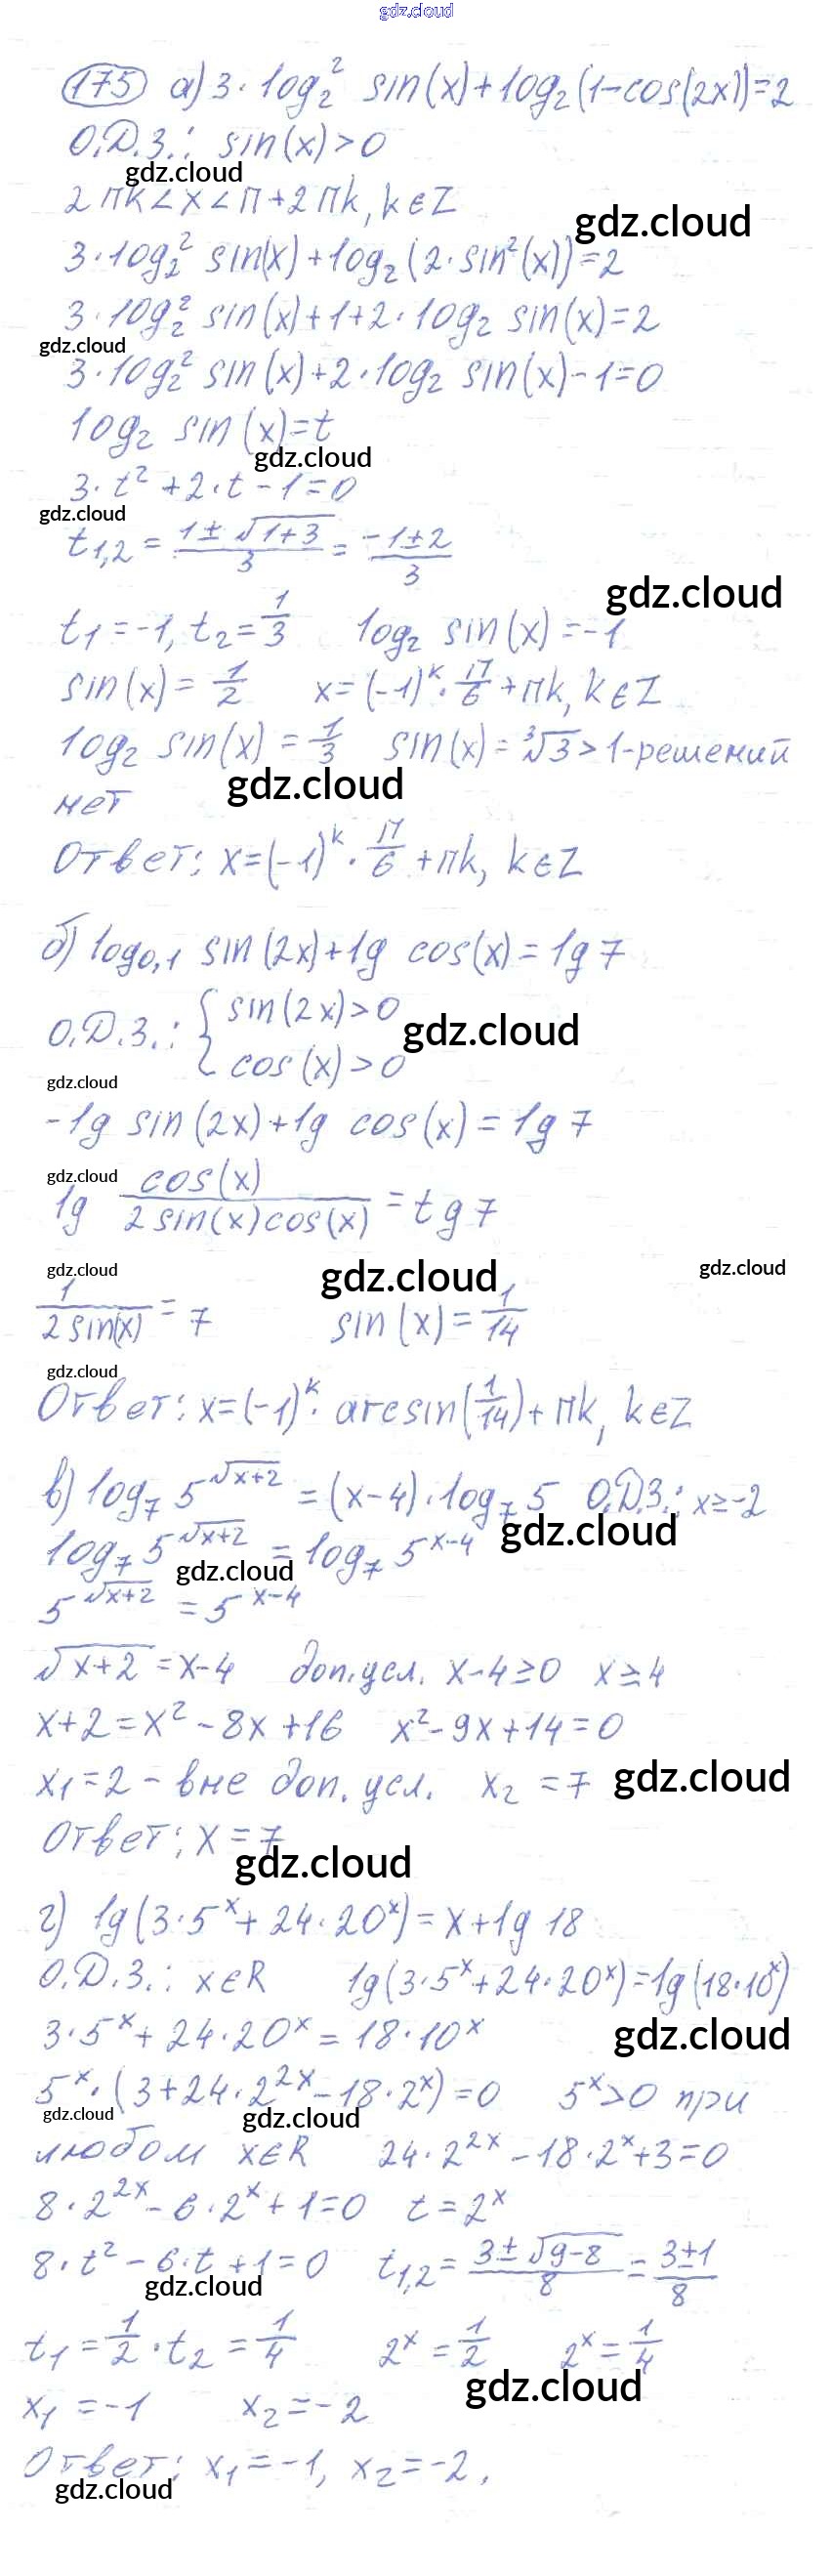 gdz.cloud
175 а) 3·log₂² sin(x)+log₂(1-cos(2x))=2
О.Д.З.: sin(x)>0
gdz.cloud
2πk<x<π+2πk, k∈Z
gdz.cloud
3·log₂² sin(x)+log₂(2·sin²(x))=2
3·log₂² sin(x)+1+2·log₂ sin(x)=2
gdz.cloud
3·log₂² sin(x)+2·log₂ sin(x)-1=0
log₂ sin(x)=t
gdz.cloud
3·t²+2·t-1=0
gdz.cloud
t₁,₂ = (1±√(1+3))/3 = (-1±2)/3
gdz.cloud
t₁=-1, t₂=1/3 log₂ sin(x)=-1
sin(x)=1/2 x=(-1)ᵏ·π/6+πk, k∈Z
log₂ sin(x)=1/3 sin(x)=³√3>1-решений
gdz.cloud
нет
Ответ: x=(-1)ᵏ·π/6+πk, k∈Z
б) log₀,₁ sin(2x)+lg cos(x)=lg7
О.Д.З.: { sin(2x)>0
gdz.cloud
cos(x)>0
gdz.cloud
-lg sin(2x)+lg cos(x)=lg7
gdz.cloud
lg cos(x)/(2sin(x)cos(x))=tg7
gdz.cloud gdz.cloud gdz.cloud
1/(2sin(x))=7 sin(x)=1/14
gdz.cloud
Ответ: x=(-1)ᵏ·arcsin(1/14)+πk, k∈Z
в) log₇ 5^√(x+2)=(x-4)·log₇5 О.Д.З.: x≥-2
gdz.cloud
log₇ 5^√(x+2)=log₇ 5^(x-4)
gdz.cloud
5^√(x+2)=5^(x-4)
√(x+2)=x-4 доп.усл. x-4≥0 x≥4
x+2=x²-8x+16 x²-9x+14=0
x₁=2-вне доп.усл. x₂=7
gdz.cloud
Ответ: x=7
gdz.cloud
г) lg(3·5ˣ+24·20ˣ)=x+lg18
О.Д.З.: x∈R lg(3·5ˣ+24·20ˣ)=lg(18·10ˣ)
3·5ˣ+24·20ˣ=18·10ˣ
gdz.cloud
5ˣ·(3+24·2²ˣ-18·2ˣ)=0 5ˣ>0 при
gdz.cloud gdz.cloud
любом x∈R 24·2²ˣ-18·2ˣ+3=0
8·2²ˣ-6·2ˣ+1=0 t=2ˣ
8·t²-6·t+1=0 t₁,₂=(3±√(9-8))/8=(3±1)/8
gdz.cloud
t₁=1/2·t₂=1/4 2ˣ=1/2 2ˣ=1/4
gdz.cloud
x₁=-1 x₂=-2
Ответ: x₁=-1, x₂=-2.
gdz.cloud